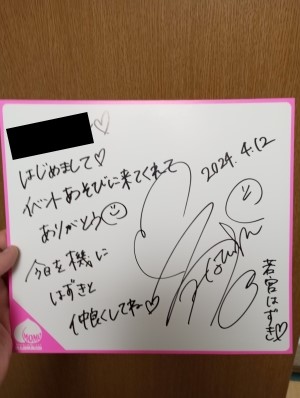 ♡
はじめまして♡
イベントあそびに来てくれて
ありがとう
今日を機に
はずきと
仲良くしてね♡
2024.4.12
若宮はずき♡